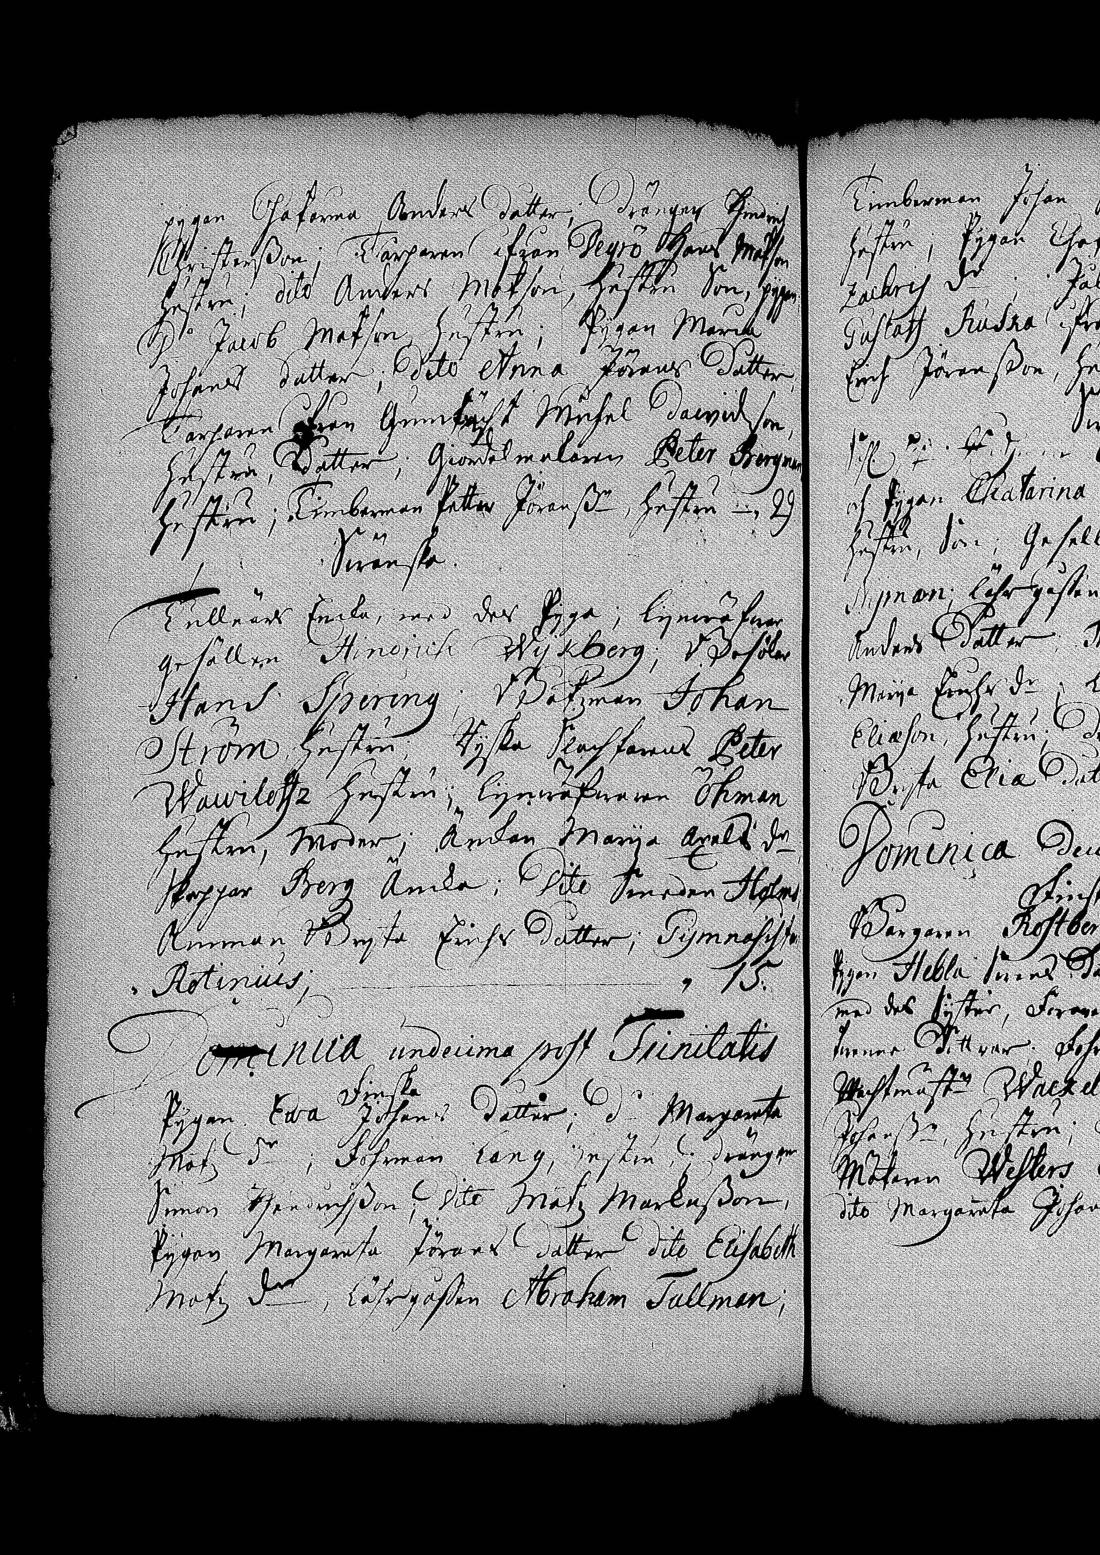 pygan Chatarina Anders datter; drängen Hendrich
Christersson; Torparen ifrån Degrö Hans Matson
hustru; dito Anders Matson, hustru Son, pigan
do Jacob Matson hustru; Pygan Maria
Johans datter; dito Anna Jörans datter,
Torparen ifrån Gumtächt Michel Davidson,
hustru, datter; Giördelmakaren Peter Bergman
hustru; Timberman Petter Jöranss, hustru 29
Svenska.
Tullnärs Encka, med des Pyga;
gesällen Hindrich Wijkberg;
Hans Spering; Båtzman Johan
Ström hustru; Tyska Slachtarens Peter
Wawilottz hustru; Öhman
hustru, Moder; Änckan Marija Axels dr
Skeppar Berg Äncka; Dito Smeden Holms
Amman Bryta Erichs datter; Gymnasisten
Rotinius; 15.
Dominica undecima post Trinitatis
Finska
Pygan Ewa Johans datter; do Margareta
Matz dr; Fohrman Lang, hustru; drängen
Simon Hendrichsson; dito Matz Markusson,
Pygan Margareta Jörans datter dito Elisabeth
Matz dr, Lährgossen Abraham Tallman;
Timberman Johan
hustru; Pygan Cha
Zachris dr
Gustaff Ruska
Erich Jöransson,
och Pygan Chatarina
hustru, Son; Gesell
Nyman; Lährgossen
Anders datter;
Marija Erichs dr;
Eliæson, hustru;
Bryta Elia dat
Dominica
Finsk
Borgaren Rostber
Pygan Hebla Svens
med des Syster,
Wachtmäst Wæzel
Johanss, Hustru;
Målaren Westers
dito Margareta Johan